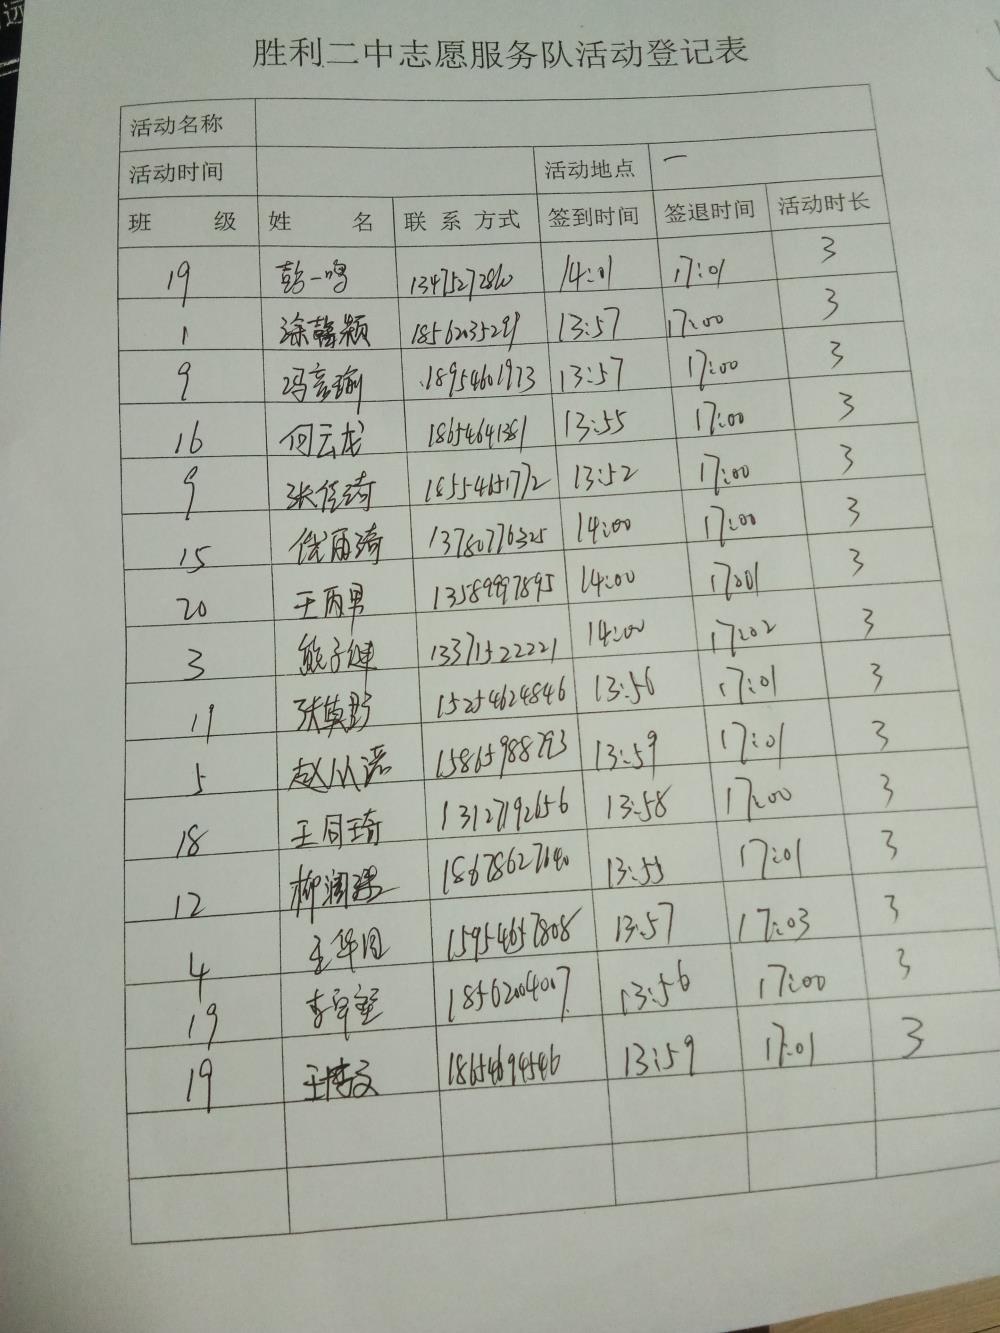 胜利二中志愿服务队活动登记表
活动名称
活动时间 活动地点 一
班 级 姓 名 联 系 方式 签到时间 签退时间 活动时长
19 彭一鸣 13475272860 14:01 17:01 3
1 涂馨颖 18562035299 13:57 17:00 3
9 冯彦瑜 18954601973 13:57 17:00 3
16 何云龙 18654641381 13:55 17:00 3
9 张佳琦 18554651772 13:52 17:00 3
15 13780776325 14:00 17:00 3
20 王丙男 13589997895 14:00 17:01 3
3 熊子健 13371522221 14:00 17:02 3
19 张莫野 15254624846 13:56 17:01 3
5 赵从诺 15865988793 13:59 17:01 3
18 王同琦 13127192656 13:58 17:00 3
12 18678627640 13:53 17:01 3
4 王华国 15954657808 13:57 17:03 3
19 18562004007 13:56 17:00 3
19 18654694546 13:59 17:01 3